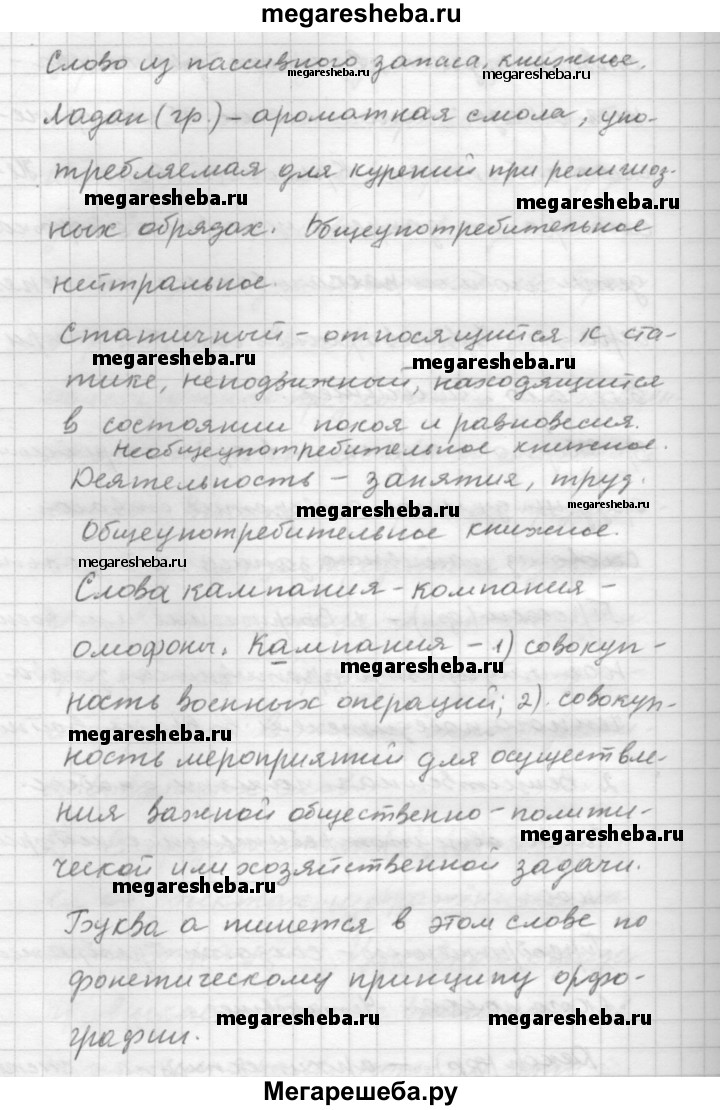 megaresheba.ru
Слово из пассивного запаса, книжное.
megaresheba.ru megaresheba.ru
Ладан (гр.) – ароматная смола, упо-
требляемая для курений при религиоз-
megaresheba.ru megaresheba.ru
ных обрядах. Общеупотребительное
нейтральное.
Статичный – относящийся к ста-
megaresheba.ru megaresheba.ru
тике, неподвижный, находящийся
в состоянии покоя и равновесия.
Необщеупотребительное книжное.
Деятельность – занятия, труд.
megaresheba.ru megaresheba.ru
Общеупотребительное книжное.
megaresheba.ru
Слова кампания – компания –
омофоны. Кампания – 1) совокуп-
megaresheba.ru
ность военных операций; 2) совокуп-
megaresheba.ru
ность мероприятий для осуществле-
ния важной общественно-полити-
megaresheba.ru
ческой или хозяйственной задачи.
megaresheba.ru
Буква а пишется в этом слове по
фонетическому принципу орфо-
megaresheba.ru megaresheba.ru
графии.
Мегарешеба.ру